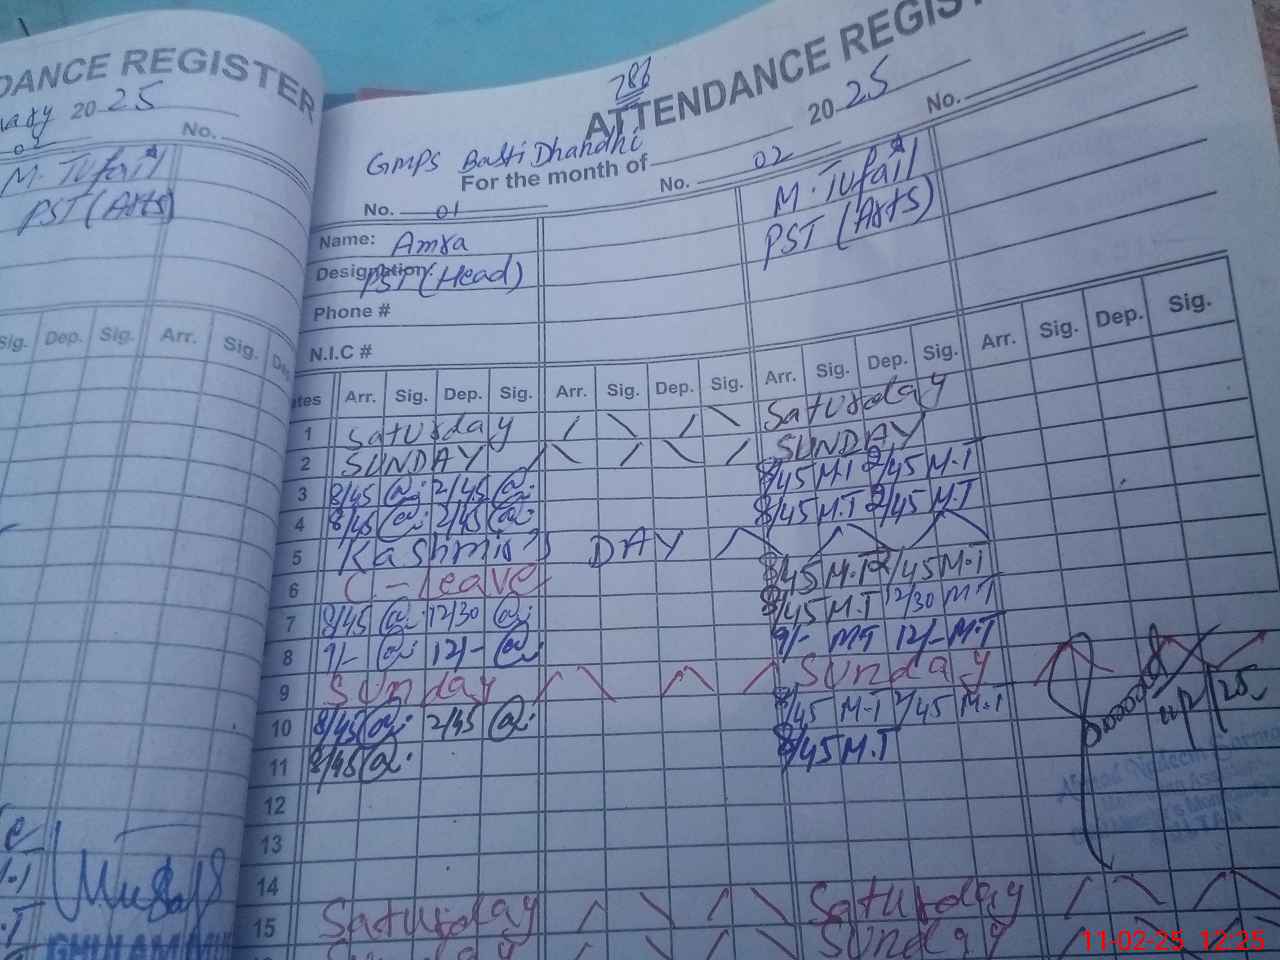 DANCE REGISTER
20 25
02
No.
M. Tufail
PST (Arts)
Sig. Dep. Sig. Arr. Sig. De
786
ATTENDANCE REGIS
GMPS Basti Dhandhi
For the month of 20 25
No. 01 No. 02 No.
Name: Amra M. Tufail
Designation: PST (Head) PST (Arts)
Phone #
N.I.C #
tes Arr. Sig. Dep. Sig. Arr. Sig. Dep. Sig. Arr. Sig. Dep. Sig. Arr. Sig. Dep. Sig.
1 Saturday Saturday
2 SUNDAY SUNDAY
3 8/45 2/45 8/45 M.T 2/45 M.T
4 8/45 2/45 8/45 M.T 2/45 M.T
5 Kashmir DAY
6 C-leave 8/45 M.T 2/45 M.T
7 8/45 12/30 8/45 M.T 12/30 M.T
8 9/- 12/- 9/- M.T 12/- M.T
9 Sunday Sunday
10 8/45 2/45 8/45 M.T 2/45 M.T
11 8/45 8/45 M.T
12
13
14
15 Saturday Saturday
Sunday
GHULAM MU
11-02-25 12:25